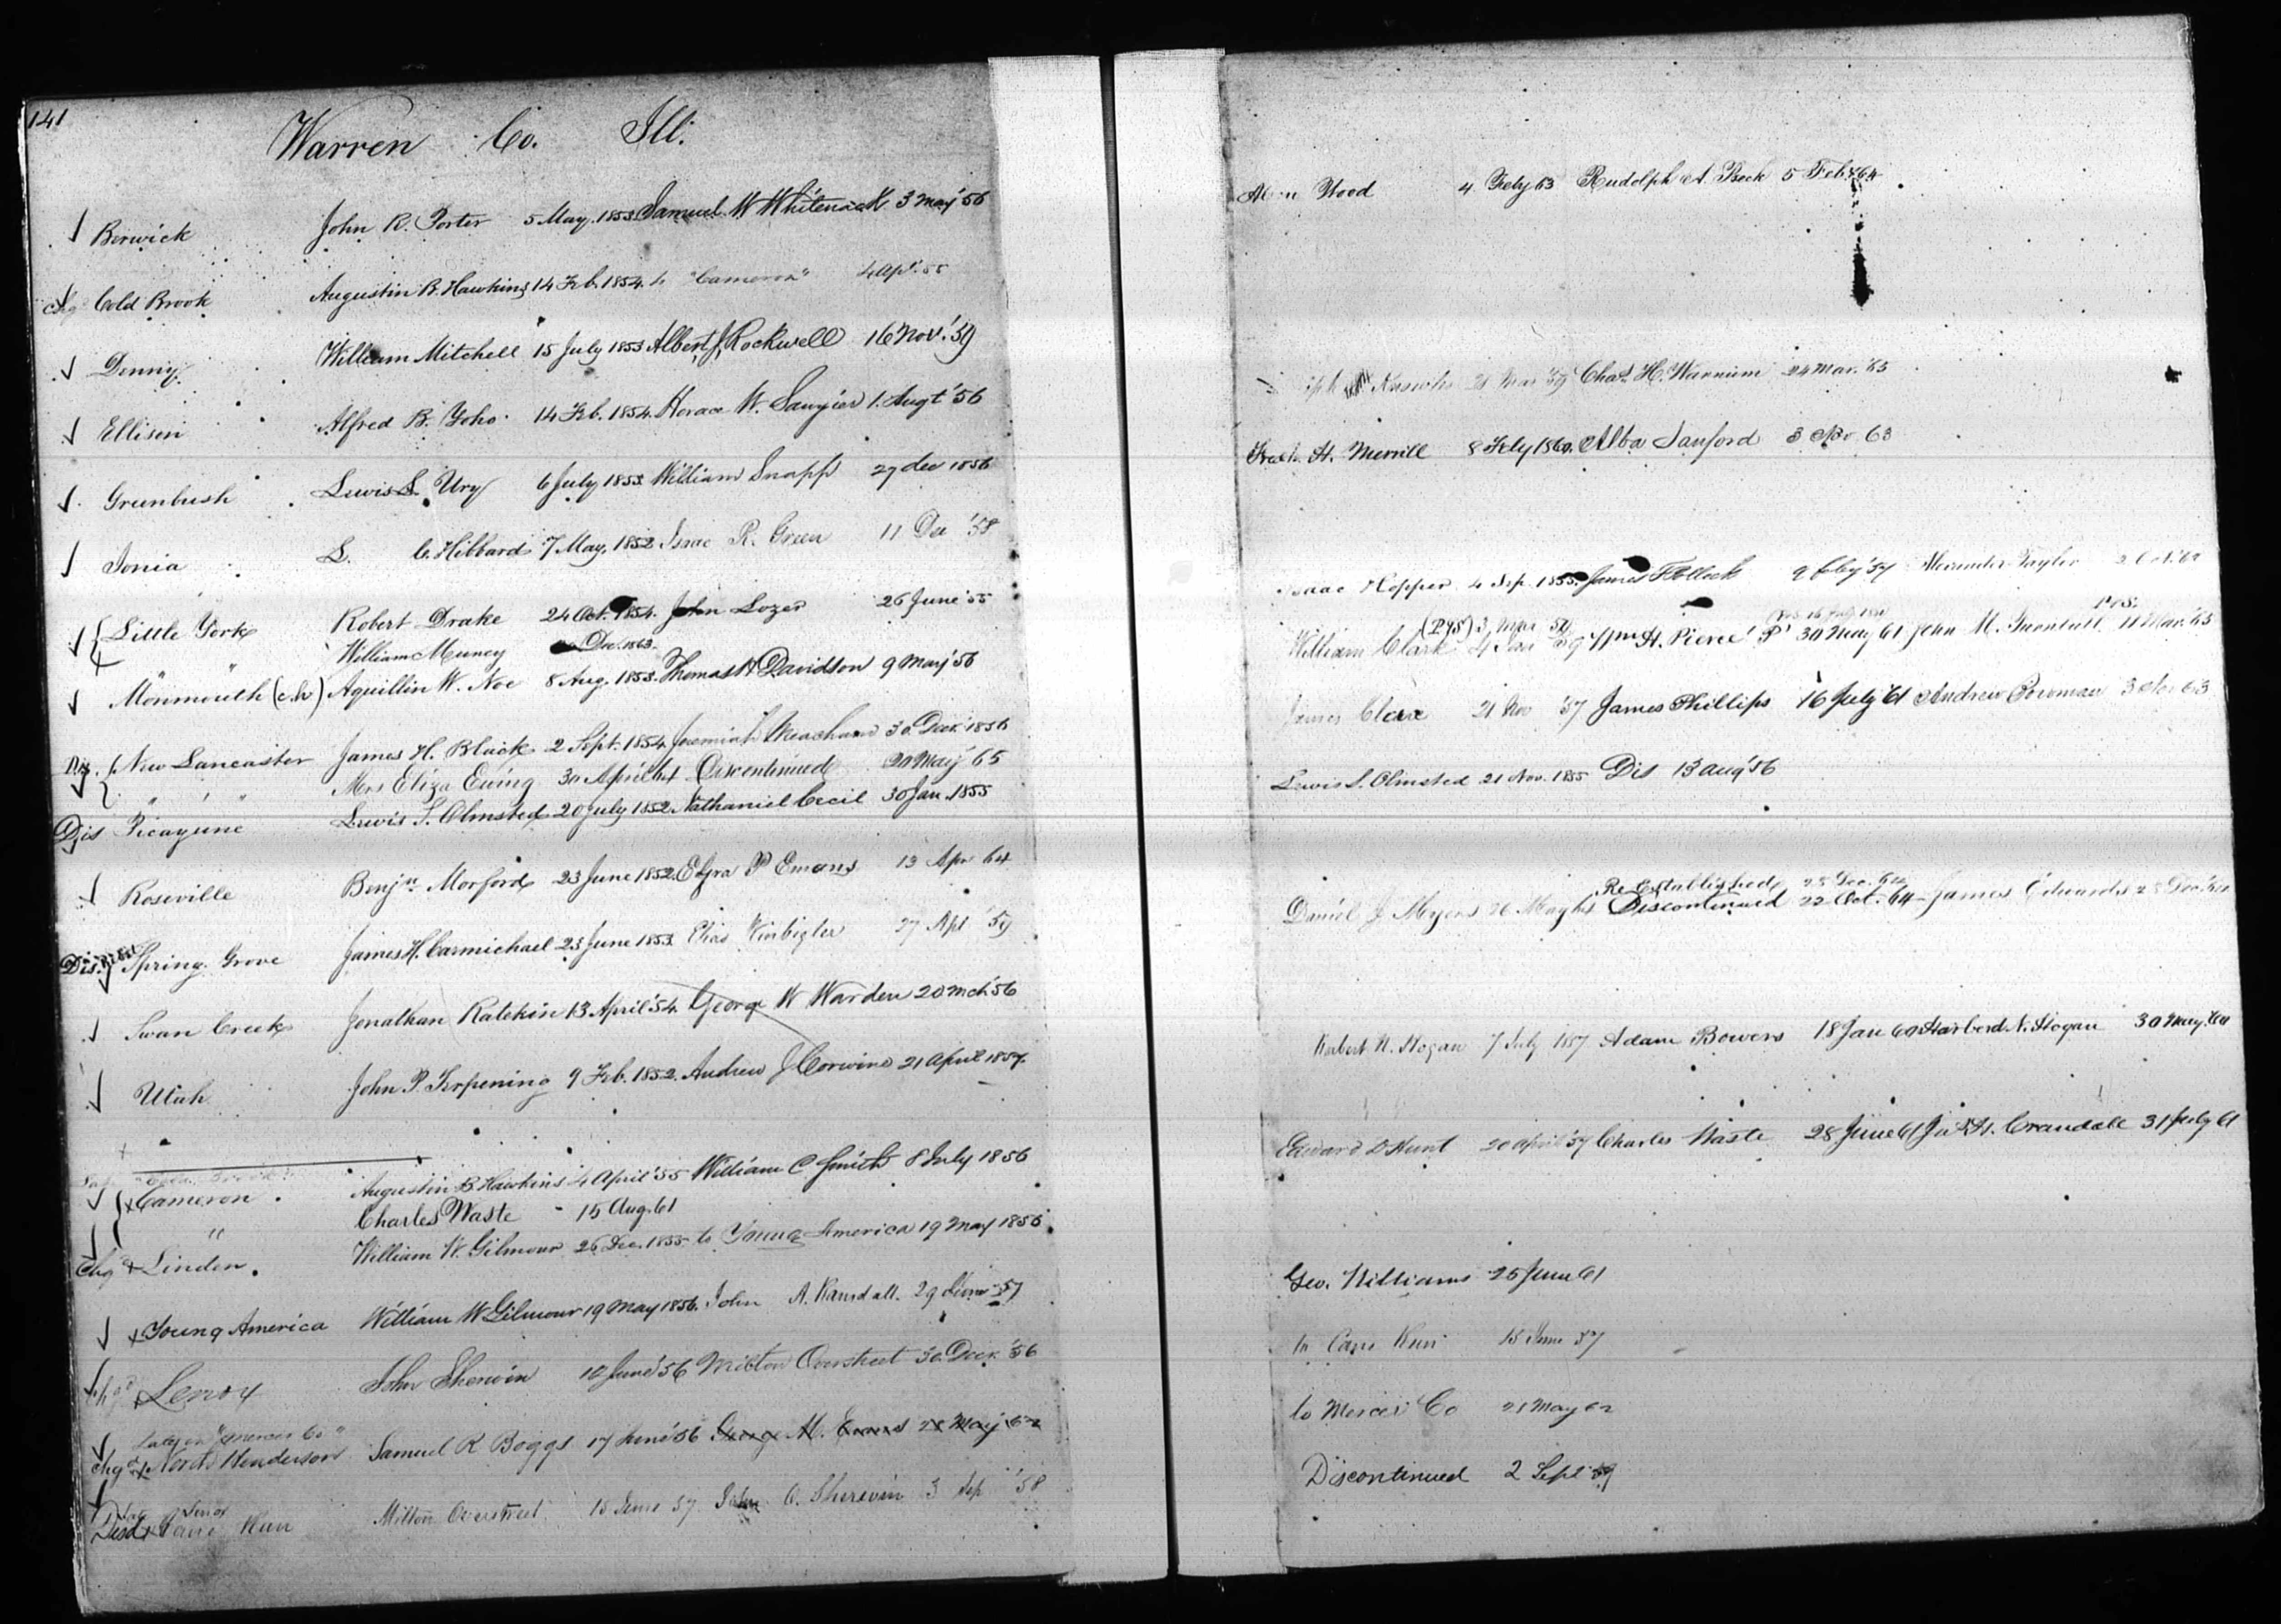 141
Warren Co. Ill.
Berwick John R. Porter 5 May. 1853 Samuel W Whitenack 3 May '56
Chg Cold Brook Augustin B. Hawkins 14 Feb. 1854. to "Cameron" 4 Apl. 55
Denny William Mitchell 15 July 1853 Albert J. Rockwell 16 Nov. '59
Ellison Alfred B. Yoho 14 Feb. 1854. Horace W. Sawyier 1. Augt '56
Greenbush Lewis L. Ury 6 July 1853. William Snapp 27 dec 1856
Ionia L. C. Hibbard 7 May. 1852 Isaac R. Green 11 Dec '58
Little York Robert Drake 24 Oct. 1854. John Lozer 26 June '55
" William Muney Dec. 1863.
Monmouth (c.h) Aquillin W. Noe 8 Aug. 1853. Thomas H Davidson 9 May '56
Dis. New Lancaster James H. Black 2 Sept. 1854. Jeremiah Meacham 30 Decr. 1856
" " Mrs Eliza Ewing 30 April 64 Discontinued 20 May '65
Dis Picayune Lewis S. Olmsted 20 July 1852. Nathaniel Cecil 30 Jan. 1855
Roseville Benjn. Morford 23 June 1852. Ezra P Emans 13 Apr 64
Dis. Spring Grove James H. Carmichael 23 June 1853. Elias 27 Apl '59
Swan Creek Jonathan Ratekin 13 April '54. George W Warden 20 Mch '56
Utah John P. Terpening 9 Feb. 1852. Andrew J Corwine 21 April 1857
Cameron. Augustin B Hawkins 4 April '55 William C. Smith 8 July 1856
" Charles Waste 15 Aug. 61
Chgd Linden. William W. Gilmour 26 Dec. 1855 to Young America 19 May 1856
Young America William W Gilmour 19 May 1856. John A. Randall. 29 '57
Chgd Lenox John Sherwin 10 June '56 Milton Overstreet 30 Decr. '56
Late in "Mercer Co"
Chgd North Henderson Samuel R Boggs 17 June '56 George M. Evans 21 May 62
Late Lenox
Disd Cane Run Milton Overstreet 15 June 57. John O. Sherwin 3 Sep '58
Wood 4 Feby 63 Rudolph A. Beck 5 Feb. 64
Chas. H. Warnium 24 Mar. '63
H. Merrill 8 Feby 1860. Alba Sanford 3 63
Isaac Hopper 4 Sep. 1855. James Pollock 9 Feby '57 Alexander Taylor
(P.Y.S.) 3 Mar 59
William Clark 4 Jan 59 Wm. H. Pierce 30 May 61 John M. 11 Mar. '65
James Clare 21 Nov '57 James Phillips 16 July 61 Andrew Bowman 3 63
Lewis S. Olmsted 21 Nov. 1855 Dis 13 Aug '56
Re-Established 23 Dec. 64
Daniel J. Meyers Discontinued 22 Oct. 64 James Edwards 23 Dec. 64
Harbert N. Hogan 7 July 1857 Adam Bowers 18 Jan 60 Harberd N. Hogan 30 May. 64
Edward D Hunt 20 April '57 Charles Waste 28 June 61 H. Crandall 31 July 61
Geo. Williams 25 June 61
to Cane Run 15 June 57
to Mercer Co 21 May 62
Discontinued 2 Sept 59